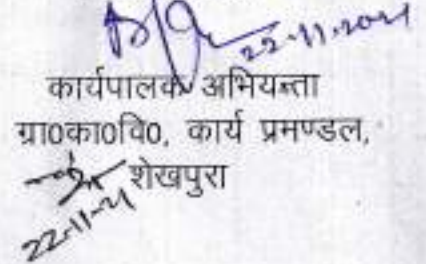 22.11.2021
कार्यपालक अभियन्ता
ग्रा0का0वि0, कार्य प्रमण्डल,
शेखपुरा
22-11-21